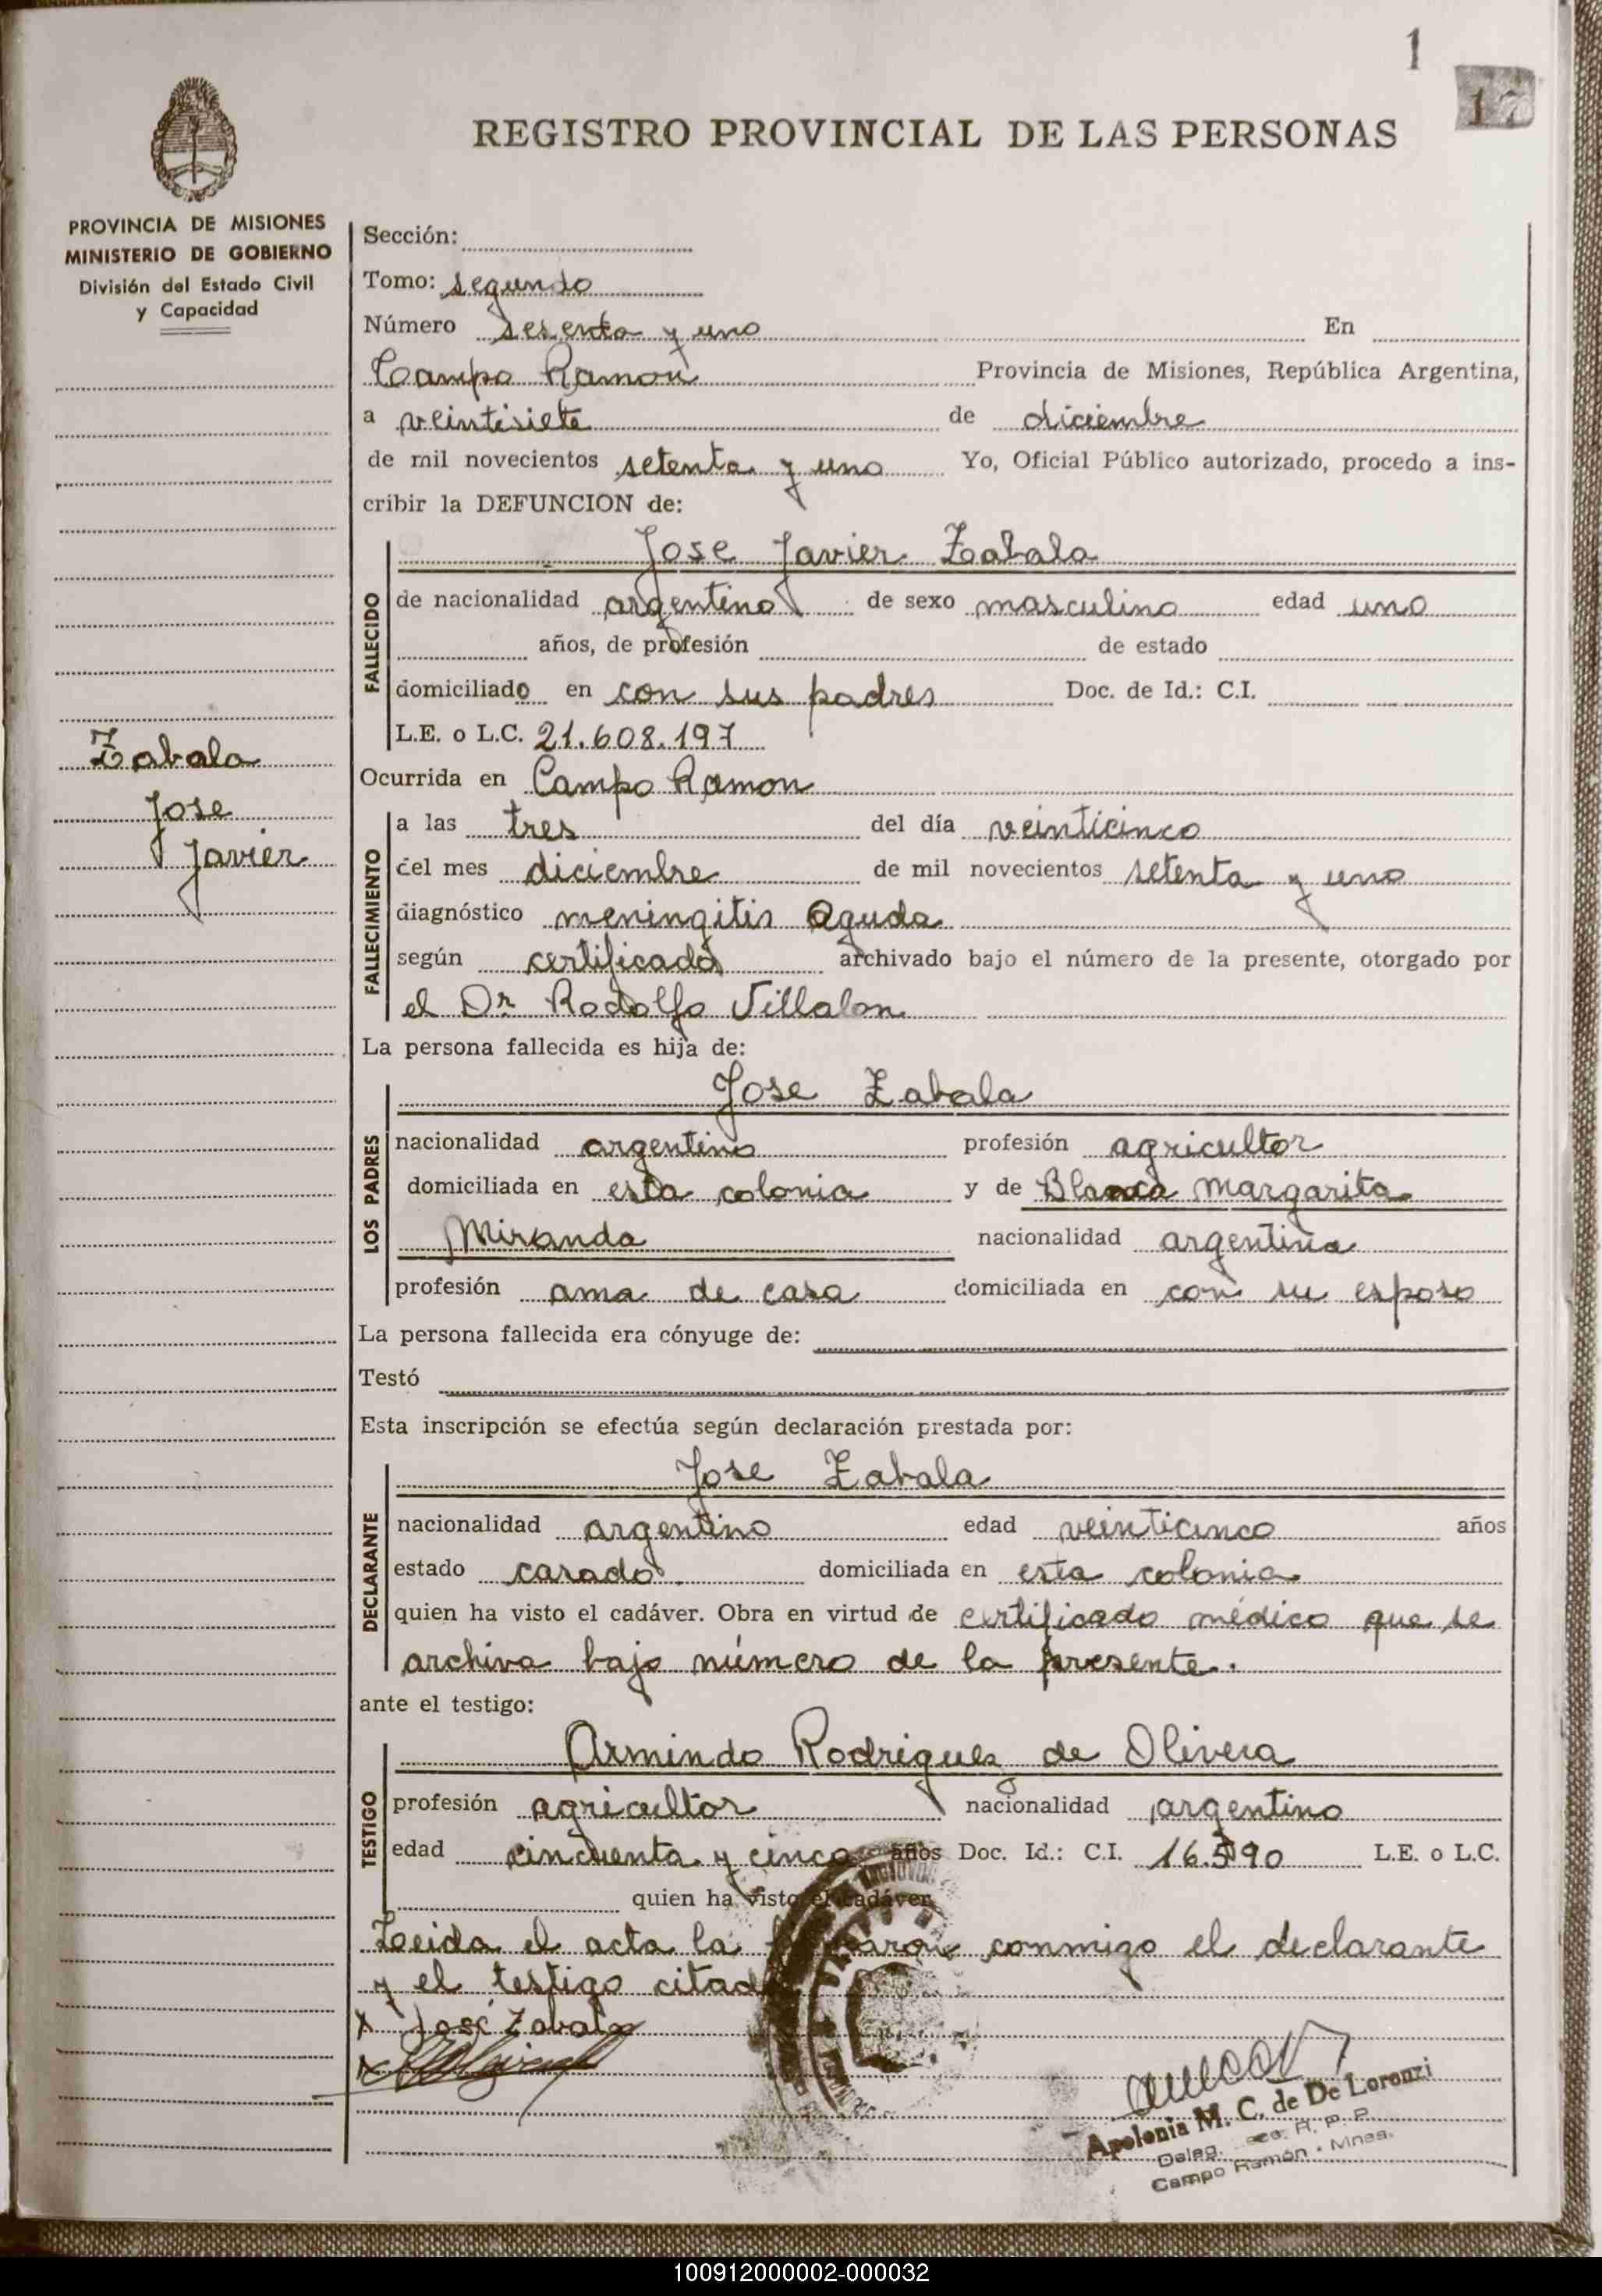 1
17
REGISTRO PROVINCIAL DE LAS PERSONAS
PROVINCIA DE MISIONES
MINISTERIO DE GOBIERNO
División del Estado Civil
y Capacidad
Zabala
Jose
Javier
Sección:
Tomo: segundo
Número sesenta y uno En
Campo Ramon Provincia de Misiones, República Argentina,
a veintisiete de diciembre
de mil novecientos setenta y uno Yo, Oficial Público autorizado, procedo a ins-
cribir la DEFUNCION de:
FALLECIDO
Jose Javier Zabala
de nacionalidad argentino de sexo masculino edad uno
años, de profesión de estado
domiciliado en con sus padres Doc. de Id.: C.I.
L.E. o L.C. 21.608.197
Ocurrida en Campo Ramon
FALLECIMIENTO
a las tres del día veinticinco
del mes diciembre de mil novecientos setenta y uno
diagnóstico meningitis aguda
según certificado archivado bajo el número de la presente, otorgado por
el Dr Rodolfo Villalon
La persona fallecida es hija de:
LOS PADRES
Jose Zabala
nacionalidad argentino profesión agricultor
domiciliada en esta colonia y de Blanca Margarita
Miranda nacionalidad argentina
profesión ama de casa domiciliada en con su esposo
La persona fallecida era cónyuge de:
Testó
Esta inscripción se efectúa según declaración prestada por:
DECLARANTE
Jose Zabala
nacionalidad argentino edad veinticinco años
estado casado domiciliada en esta colonia
quien ha visto el cadáver. Obra en virtud de certificado médico que se
archiva bajo número de la presente.
ante el testigo:
TESTIGO
Armindo Rodriguez de Olivera
profesión agricultor nacionalidad argentino
edad cincuenta y cinco años Doc. Id.: C.I. 16.590 L.E. o L.C.
quien ha visto el cadáver
Leida el acta la conmigo el declarante
y el testigo
x José Zabala
x
Apolonia M. C. de De Lorenzi
Deleg. R. P. P.
Campo Ramón - Mnes.
100912000002-000032